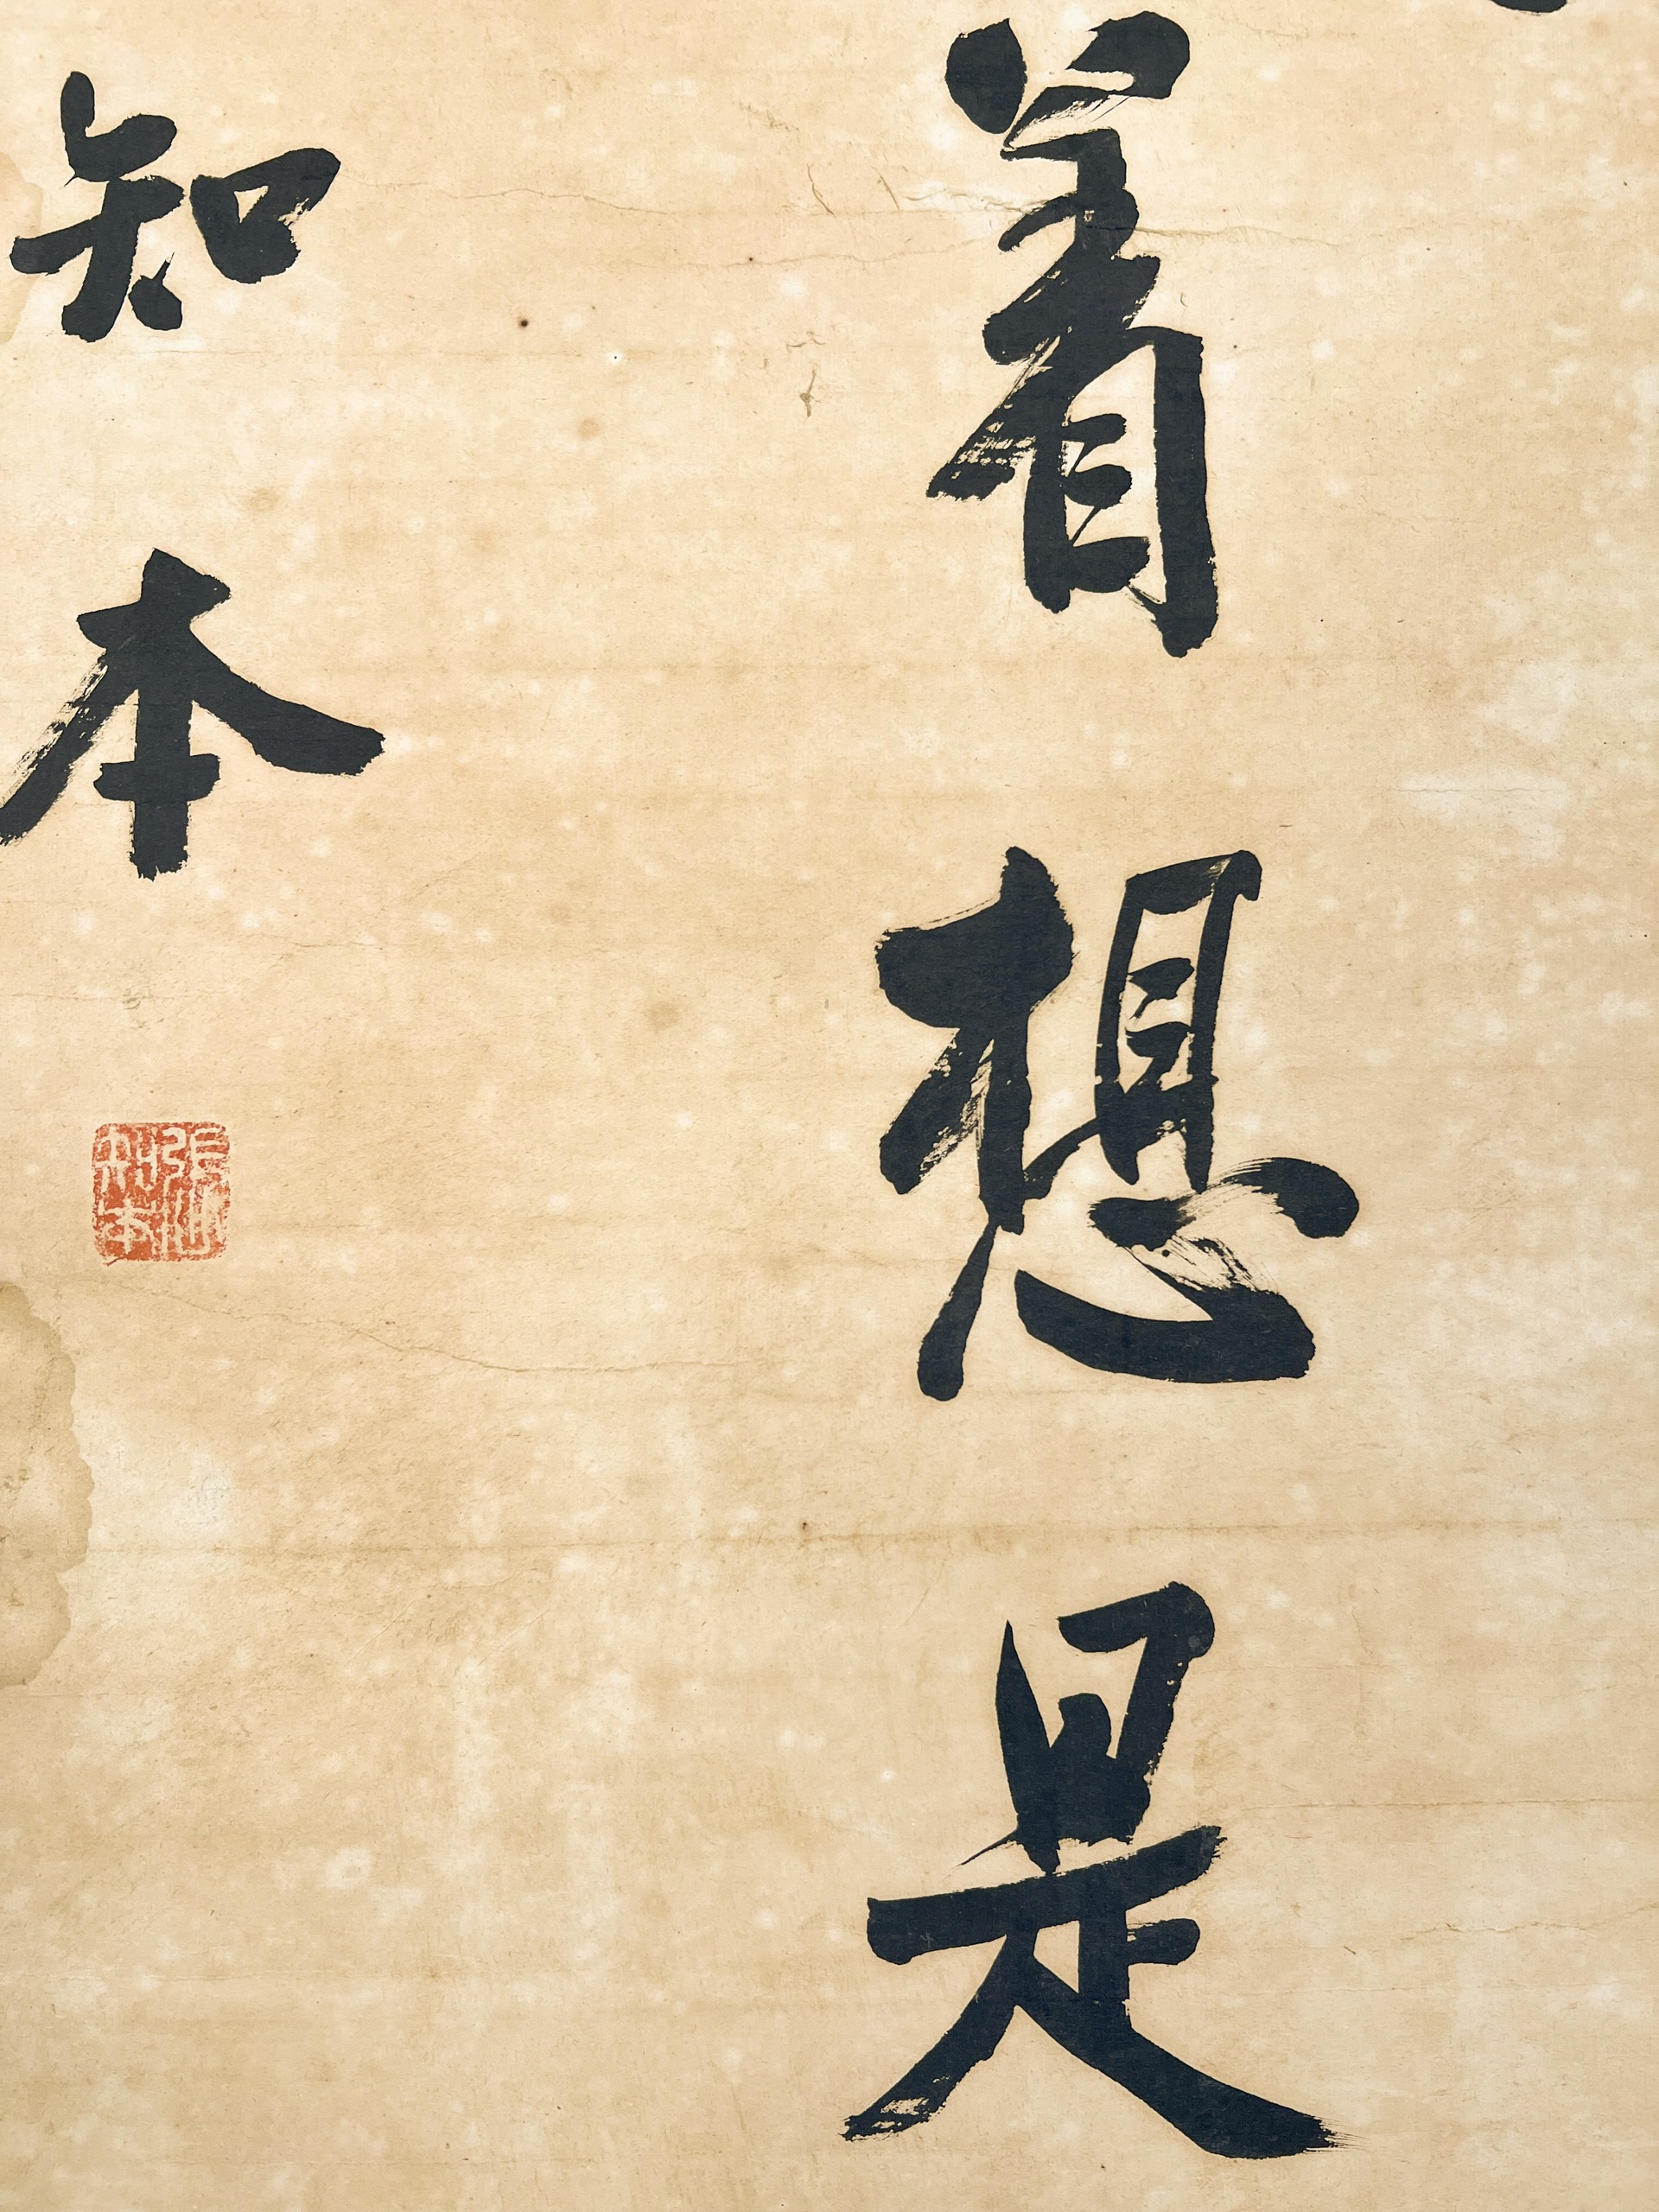 着想是
知本